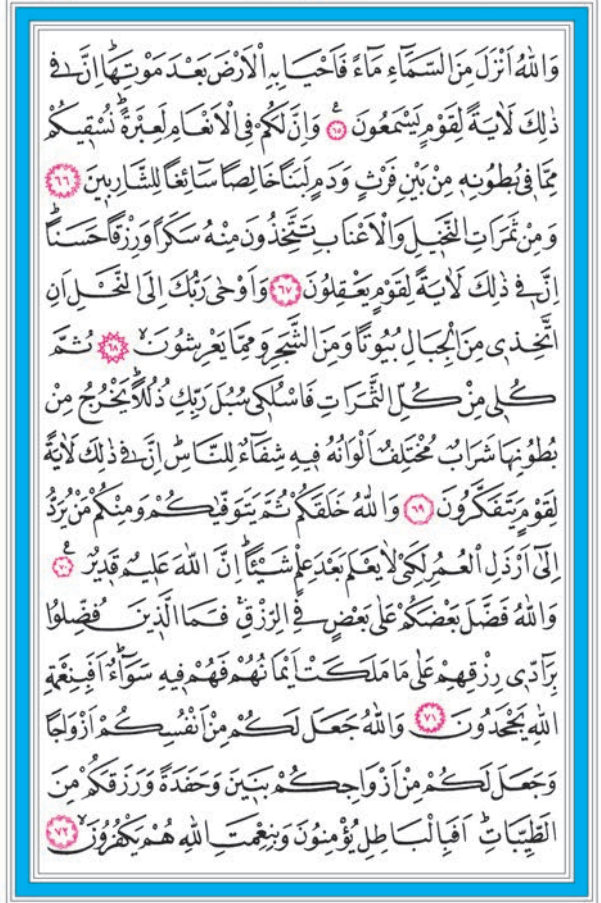 وَاللّٰهُ اَنْزَلَ مِنَ السَّمَٓاءِ مَٓاءً فَاَحْيَا بِهِ الْاَرْضَ بَعْدَ مَوْتِهَاۜ اِنَّ ف۪ي
ذٰلِكَ لَاٰيَةً لِقَوْمٍ يَسْمَعُونَ ﴿٦٥﴾ وَاِنَّ لَكُمْ فِي الْاَنْعَامِ لَعِبْرَةًۜ نُسْق۪يكُمْ
مِمَّا ف۪ي بُطُونِه۪ مِنْ بَيْنِ فَرْثٍ وَدَمٍ لَبَناً خَالِصاً سَٓائِغاً لِلشَّارِب۪ينَ ﴿٦٦﴾
وَمِنْ ثَمَرَاتِ النَّخ۪يلِ وَالْاَعْنَابِ تَتَّخِذُونَ مِنْهُ سَكَراً وَرِزْقاً حَسَناًۜ
اِنَّ ف۪ي ذٰلِكَ لَاٰيَةً لِقَوْمٍ يَعْقِلُونَ ﴿٦٧﴾ وَاَوْحٰى رَبُّكَ اِلَى النَّحْلِ اَنِ
اتَّخِذ۪ي مِنَ الْجِبَالِ بُيُوتاً وَمِنَ الشَّجَرِ وَمِمَّا يَعْرِشُونَۙ ﴿٦٨﴾ ثُمَّ
كُل۪ي مِنْ كُلِّ الثَّمَرَاتِ فَاسْلُك۪ي سُبُلَ رَبِّكِ ذُلُلاًۜ يَخْرُجُ مِنْ
بُطُونِهَا شَرَابٌ مُخْتَلِفٌ اَلْوَانُهُ ف۪يهِ شِفَٓاءٌ لِلنَّاسِۜ اِنَّ ف۪ي ذٰلِكَ لَاٰيَةً
لِقَوْمٍ يَتَفَكَّرُونَ ﴿٦٩﴾ وَاللّٰهُ خَلَقَكُمْ ثُمَّ يَتَوَفّٰيكُمْ وَمِنْكُمْ مَنْ يُرَدُّ
اِلٰٓى اَرْذَلِ الْعُمُرِ لِكَيْ لَا يَعْلَمَ بَعْدَ عِلْمٍ شَيْـٔاًۜ اِنَّ اللّٰهَ عَل۪يمٌ قَد۪يرٌ ﴿٧٠﴾
وَاللّٰهُ فَضَّلَ بَعْضَكُمْ عَلٰى بَعْضٍ فِي الرِّزْقِۚ فَمَا الَّذ۪ينَ فُضِّلُوا
بِرَٓادّ۪ي رِزْقِهِمْ عَلٰى مَا مَلَكَتْ اَيْمَانُهُمْ فَهُمْ ف۪يهِ سَوَٓاءٌۜ اَفَبِنِعْمَةِ
اللّٰهِ يَجْحَدُونَ ﴿٧١﴾ وَاللّٰهُ جَعَلَ لَكُمْ مِنْ اَنْفُسِكُمْ اَزْوَاجاً
وَجَعَلَ لَكُمْ مِنْ اَزْوَاجِكُمْ بَن۪ينَ وَحَفَدَةً وَرَزَقَكُمْ مِنَ
الطَّيِّبَاتِۜ اَفَبِالْبَاطِلِ يُؤْمِنُونَ وَبِنِعْمَتِ اللّٰهِ هُمْ يَكْفُرُونَۙ ﴿٧٢﴾